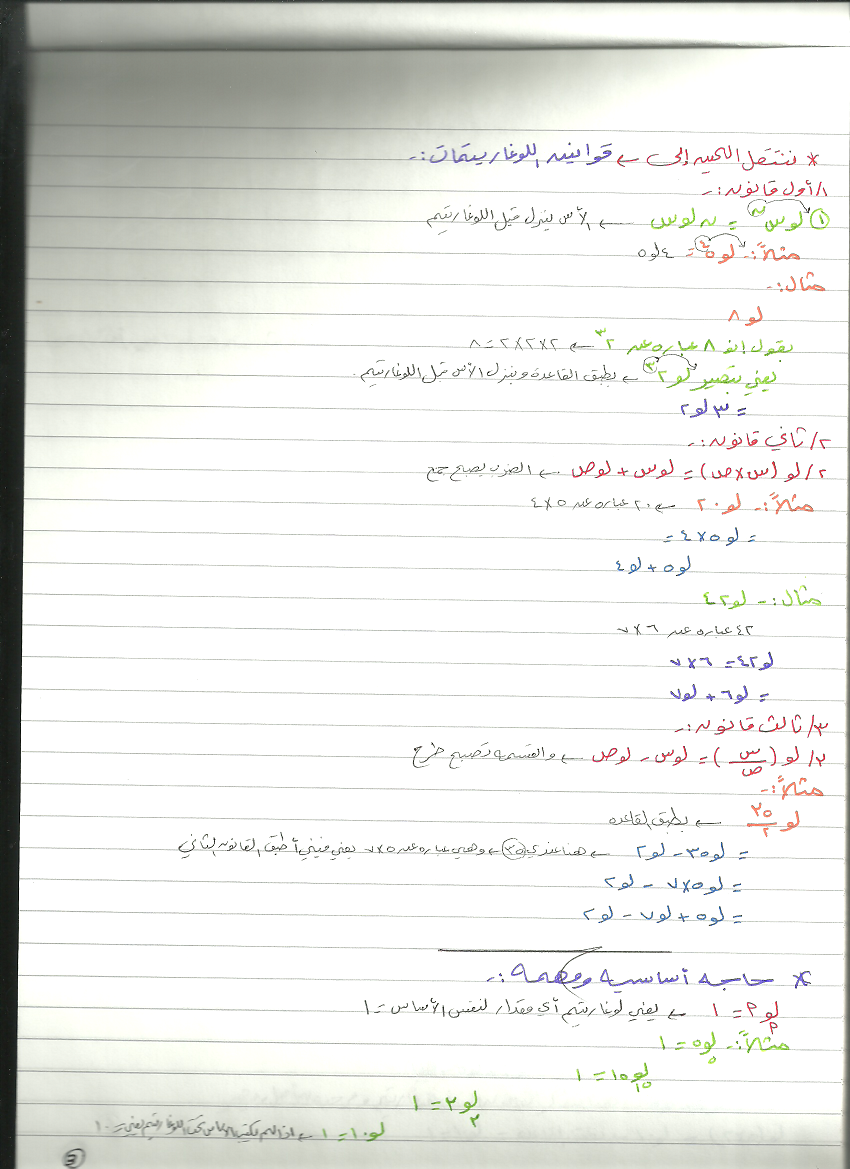 * ننتقل الحين إلى ← قوانين اللوغاريتمات :-
١/ أول قانون :-
① لو سⁿ = ن لو س ← الأس ينزل قبل اللوغاريتم
مثلاً :- لو ٥⁴ = ٤ لو ٥
مثال :-
لو ٨
بقول إنو ٨ عباره عن ٢³ ← ٢×٢×٢ = ٨
يعني بتصير لو ٢³ ← بطبق القاعدة و بنزل الأس قبل اللوغاريتم .
= ٣ لو ٢
٢/ ثاني قانون :-
٢/ لو (س × ص) = لو س + لو ص ← الضرب يصبح جمع
مثلاً :- لو ٢٠ ← ٢٠ عباره عن ٥ × ٤
= لو ٥ × ٤ =
لو ٥ + لو ٤
مثال :- لو ٤٢
٤٢ عباره عن ٦ × ٧
لو ٤٢ = ٦ × ٧
= لو ٦ + لو ٧
٣/ ثالث قانون :-
٣/ لو (س/ص) = لو س - لو ص ← والقسمه تصبح طرح
مثلاً :-
لو ٣٥/٢ ← بطبق القاعده
= لو ٣٥ - لو ٢ ← هنا عندي ٣٥ ← وهي عباره عن ٥ × ٧ يعني فيني أطبق القانون الثاني
= لو ٥ × ٧ - لو ٢
= لو ٥ + لو ٧ - لو ٢
* حاجه أساسيه ومهمه :-
لوم م = ١ ← يعني لوغاريتم أي مقدار لنفس الأساس = ١
مثلاً :- لو₅ ٥ = ١
لو₁₅ ١٥ = ١
لو₂ ٢ = ١
لو ١٠ = ١ ← اذا لم يكتب الأساس تحت اللوغاريتم يعني = ١٠